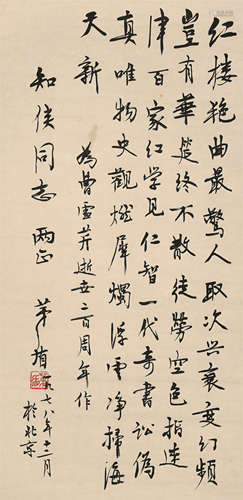 红楼艳曲最驚人取次兴衰变幻频
豈有華筵终不散徒劳空色指迷
津百家红学見仁智一代奇书讼偽
真唯物史觀燃犀燭浮雲净掃海
天新
為曹雪芹逝世二百周年作
知侠同志 两正
茅盾 一九七八年十二月
於北京